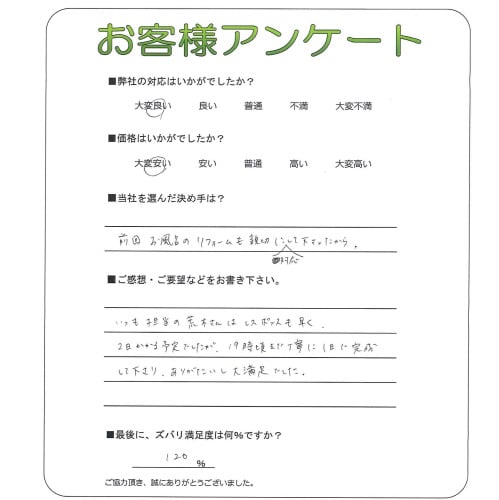 お客様アンケート
■弊社の対応はいかがでしたか？
大変良い 良い 普通 不満 大変不満
■価格はいかがでしたか？
大変安い 安い 普通 高い 大変高い
■当社を選んだ決め手は？
前回 お風呂の リフォームも 親切に対応して下さったから。
■ご感想・ご要望などをお書き下さい。
いつも 担当の 荒木さんは レスポンスも 早く、
2日かかる予定でしたが、19時頃まで丁寧に1日で完成
して下さり、ありがたいし 大満足でした。
■最後に、ズバリ満足度は何%ですか？
120 %
ご協力頂き、誠にありがとうございました。